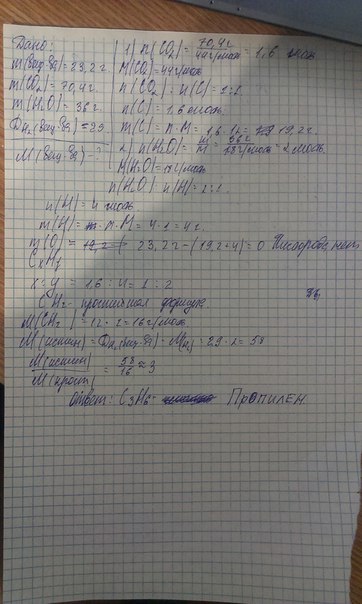 Дано:
m(вещ-ва)=23,2г.
m(CO₂)=70,4г.
m(H₂O)=36г.
Dн₂(вещ-ва)=29
M(вещ-ва)-?
1) n(CO₂)=70,4г/44г/моль=1,6 моль
M(CO₂)=44г/моль
n(CO₂):n(C)=1:1
n(C)=1,6моль
m(C)=n·M=1,6·12=19,2г.
2) n(H₂O)=m/M=36г/18г/моль=2моль
M(H₂O)=18г/моль
n(H₂O):n(H)=2:1
n(H)=4моль
m(H)=n·M=4·1=4г.
m(O)=23,2г-(19,2+4)=0 Кислорода нет
CxHy
x:y=1,6:4=1:2
CH₂-простейшая формула
M(CH₂)=12·2=16г/моль
M(истин)=Dн₂(вещ-ва)·M(н₂)=29·2=58
M(истин)/M(прост)=58/16≈3
ответ: C₃H₆- Пропилен